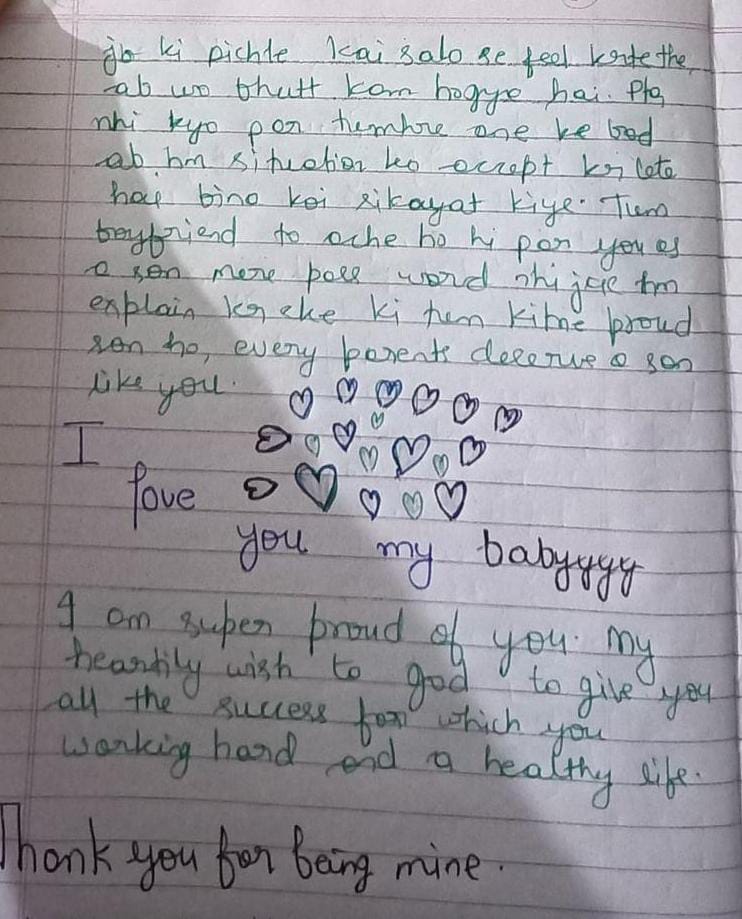 jo ki pichle kai salo se feel krte the,
ab wo bhutt kam hogye hai. Pta
nhi kyo par tumhre ane ke bad
ab hm situation ko accept kr lete
hai bina koi sikayat kiye. Tum
boyfriend to ache ho hi par you as
a son mere pass word nhi jae tm
explain kr ske ki tum kitne proud
son ho, every parents deserve a son
like you.
I
love
you my babyyyy
I am super proud of you. My
heartily wish to god to give you
all the success for which you
working hard and a healthy life.
Thank you for being mine.